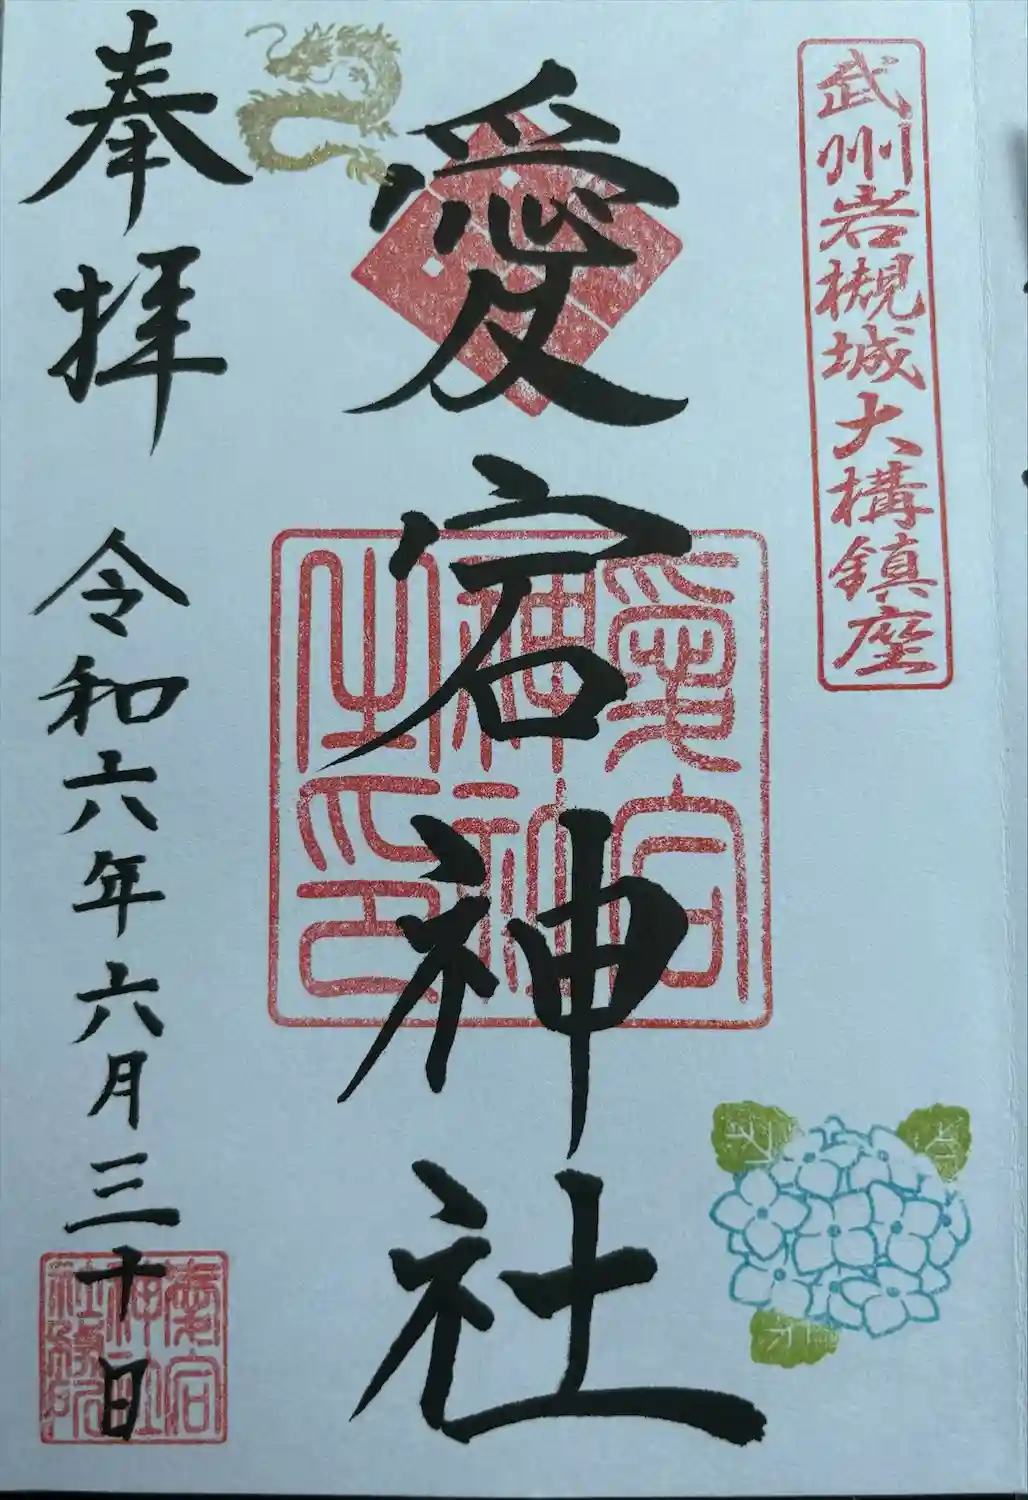 武州岩槻城大構鎮座
愛宕神社
愛宕
神社
之印
奉拝
令和六年六月三十日
愛宕
神社
社務所